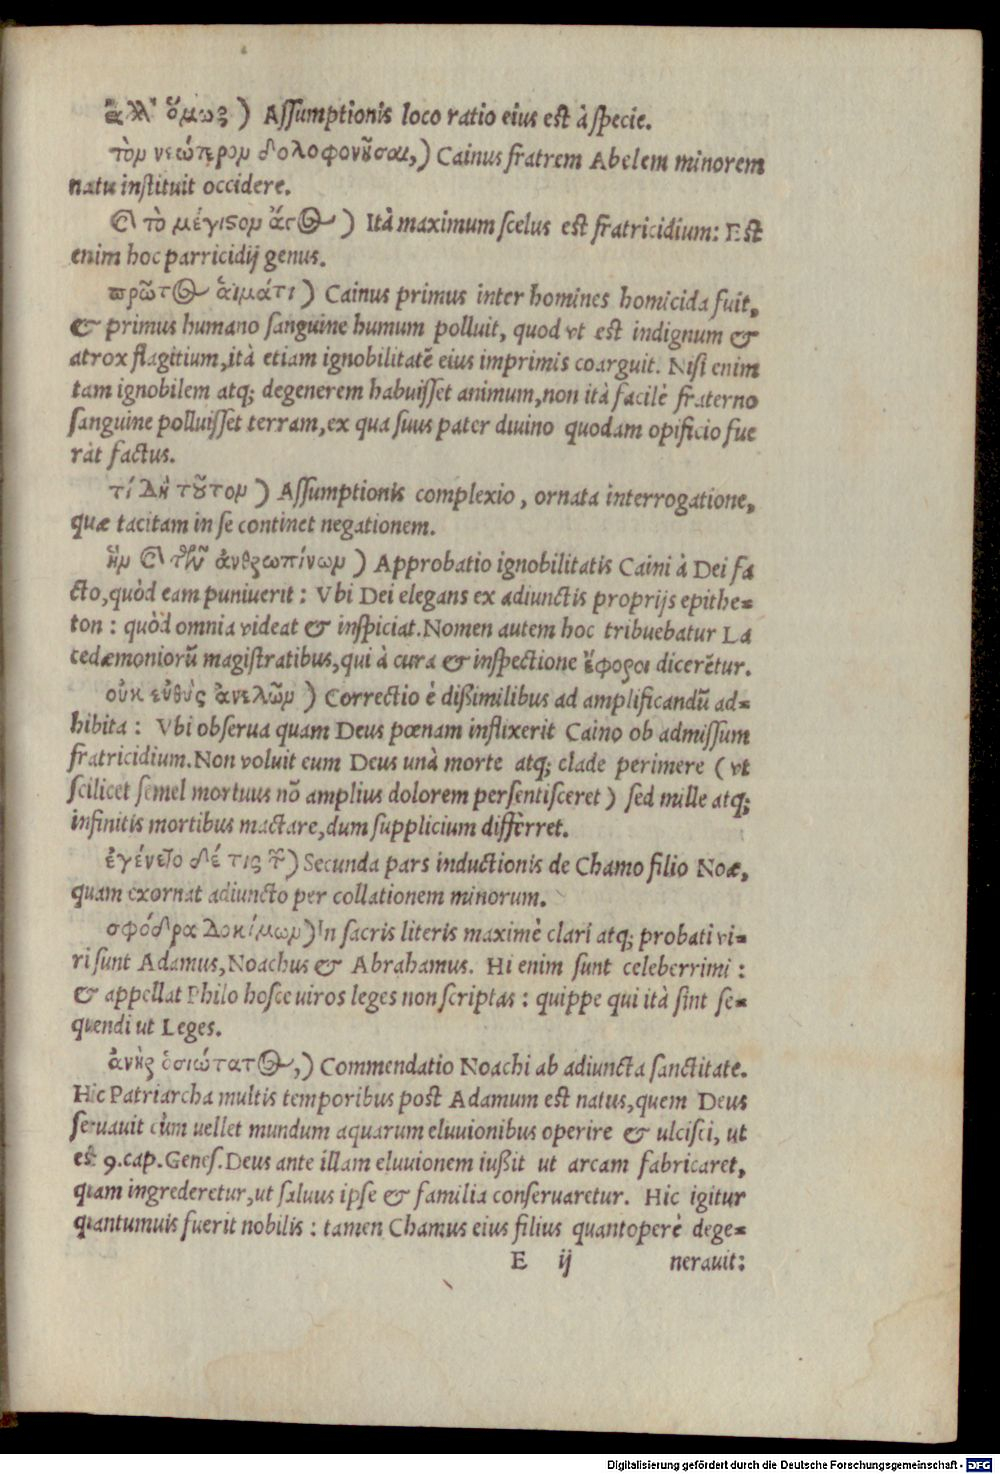 ἀλλ' ὅμως ) Aſſumptionis loco ratio eius est à ſpecie.
τὸν νεώτερον δολοφονῆσαι, ) Cainus fratrem Abelem minorem
natu inſtituit occidere.
καὶ τὸ μέγιστον ἄγος ) Ità maximum ſcelus est fratricidium: Est
enim hoc parricidij genus.
πρῶτος αἵματι ) Cainus primus inter homines homicida fuit,
& primus humano ſanguine humum polluit, quod vt est indignum &
atrox flagitium, ità etiam ignobilitatē eius imprimis coarguit. Niſi enim
tam ignobilem atq; degenerem habuiſſet animum, non ità facilè fraterno
ſanguine polluiſſet terram, ex qua ſuus pater diuino quodam opificio fue
rat factus.
τί δὴ τοῦτον ) Aſſumptionis complexio, ornata interrogatione,
quæ tacitam in ſe continet negationem.
ἣν καὶ τῶν ἀνθρωπίνων ) Approbatio ignobilitatis Caini à Dei fa
cto, quòd eam puniuerit: Vbi Dei elegans ex adiunctis proprijs epithe=
ton: quòd omnia videat & inſpiciat. Nomen autem hoc tribuebatur La
cedæmoniorū magiſtratibus, qui à cura & inſpectione ἔφοροι dicerētur.
οὐκ εὐθὺς ἀνελὼν ) Correctio è dißimilibus ad amplificandū ad=
hibita: Vbi obſerua quam Deus pœnam inflixerit Caino ob admiſſum
fratricidium. Non voluit eum Deus unà morte atq; clade perimere ( vt
ſcilicet ſemel mortuus nō amplius dolorem perſentiſceret ) ſed mille atq;
infinitis mortibus mactare, dum ſupplicium differret.
ἐγένετο δέ τις τῶν ) Secunda pars inductionis de Chamo filio Noæ,
quam exornat adiuncto per collationem minorum.
σφόδρα δοκίμων ) In ſacris literis maximè clari atq; probati vi=
ri ſunt Adamus, Noachus & Abrahamus. Hi enim ſunt celeberrimi:
& appellat Philo hoſce viros leges non ſcriptas: quippe qui ità ſint ſe=
quendi ut Leges.
ἀνὴρ ὁσιώτατος, ) Commendatio Noachi ab adiuncta ſanctitate.
Hic Patriarcha multis temporibus post Adamum est natus, quem Deus
ſeruauit cùm uellet mundum aquarum eluuionibus operire & ulciſci, ut
est 9. cap. Geneſ. Deus ante illam eluuionem iußit ut arcam fabricaret,
quam ingrederetur, ut ſaluus ipſe & familia conſeruaretur. Hic igitur
quantumuis fuerit nobilis: tamen Chamus eius filius quantoperè dege=
E ij nerauit:
Digitalisierung gefördert durch die Deutsche Forschungsgemeinschaft - DFG